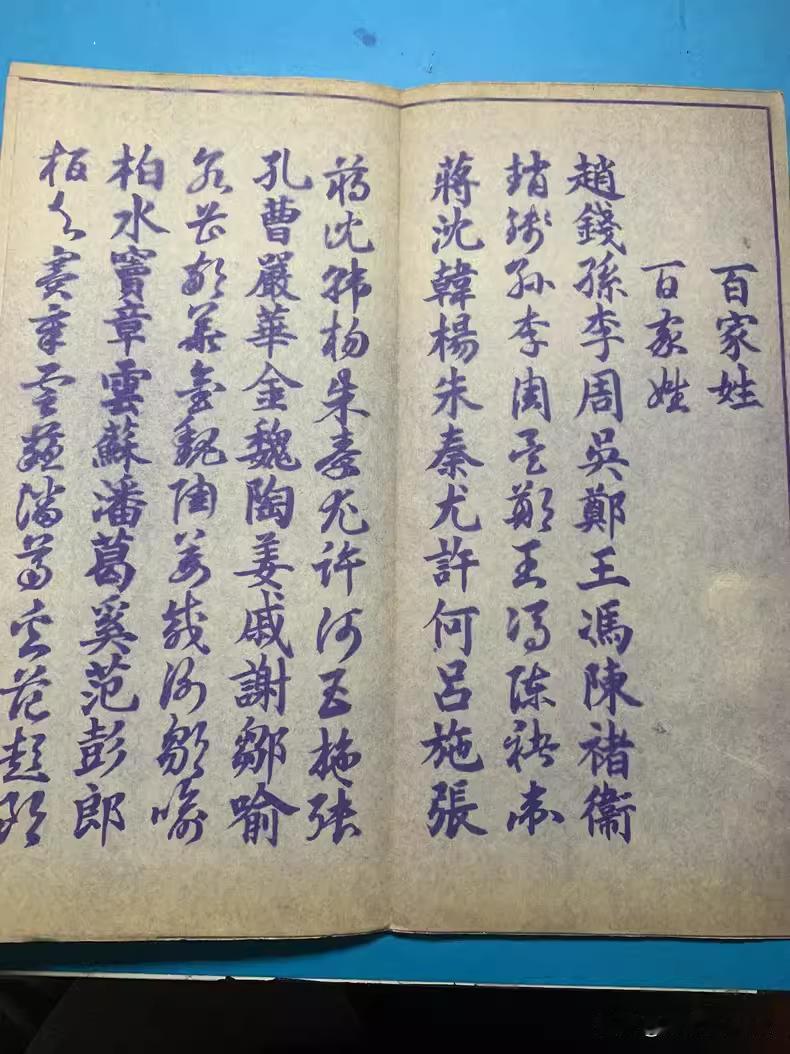 百家姓
百家姓
趙錢孫李周吳鄭王馮陳褚衞
趙錢孫李周吳鄭王馮陳褚衞
蔣沈韓楊朱秦尤許何呂施張
蔣沈韓楊朱秦尤許何呂施張
孔曹嚴華金魏陶姜戚謝鄒喻
孔曹嚴華金魏陶姜戚謝鄒喻
柏水竇章雲蘇潘葛奚范彭郎
柏水竇章雲蘇潘葛奚范彭郎